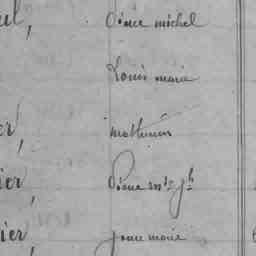 ul, Pierre michel
Louis marie
er, mathurin
ier, Pierre m.ie j.h
ier, jean marie